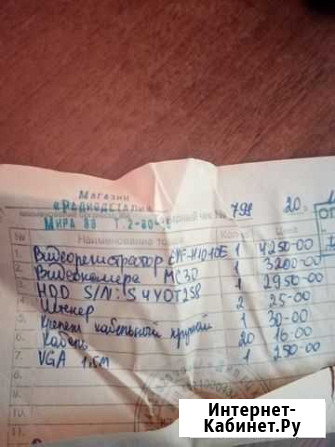 МАГАЗИН
«РАДИОДЕТАЛИ
МИРА 80 Т. 2-80-
Товарный чек № 798 20
№ Наименование Кол Цена
1 Видеорегистратор 1 4250-00
2 Видеокамера МС30 1 3200-00
3 HDD S/N: S4Y0T258 1 2950-00
4 2 25-00
5 кабельный круглый 1 30-00
6 Кабель 20 16-00
7 VGA 1.5м 1 250-00
8
9
10
11
Интернет-
Кабинет.Ру